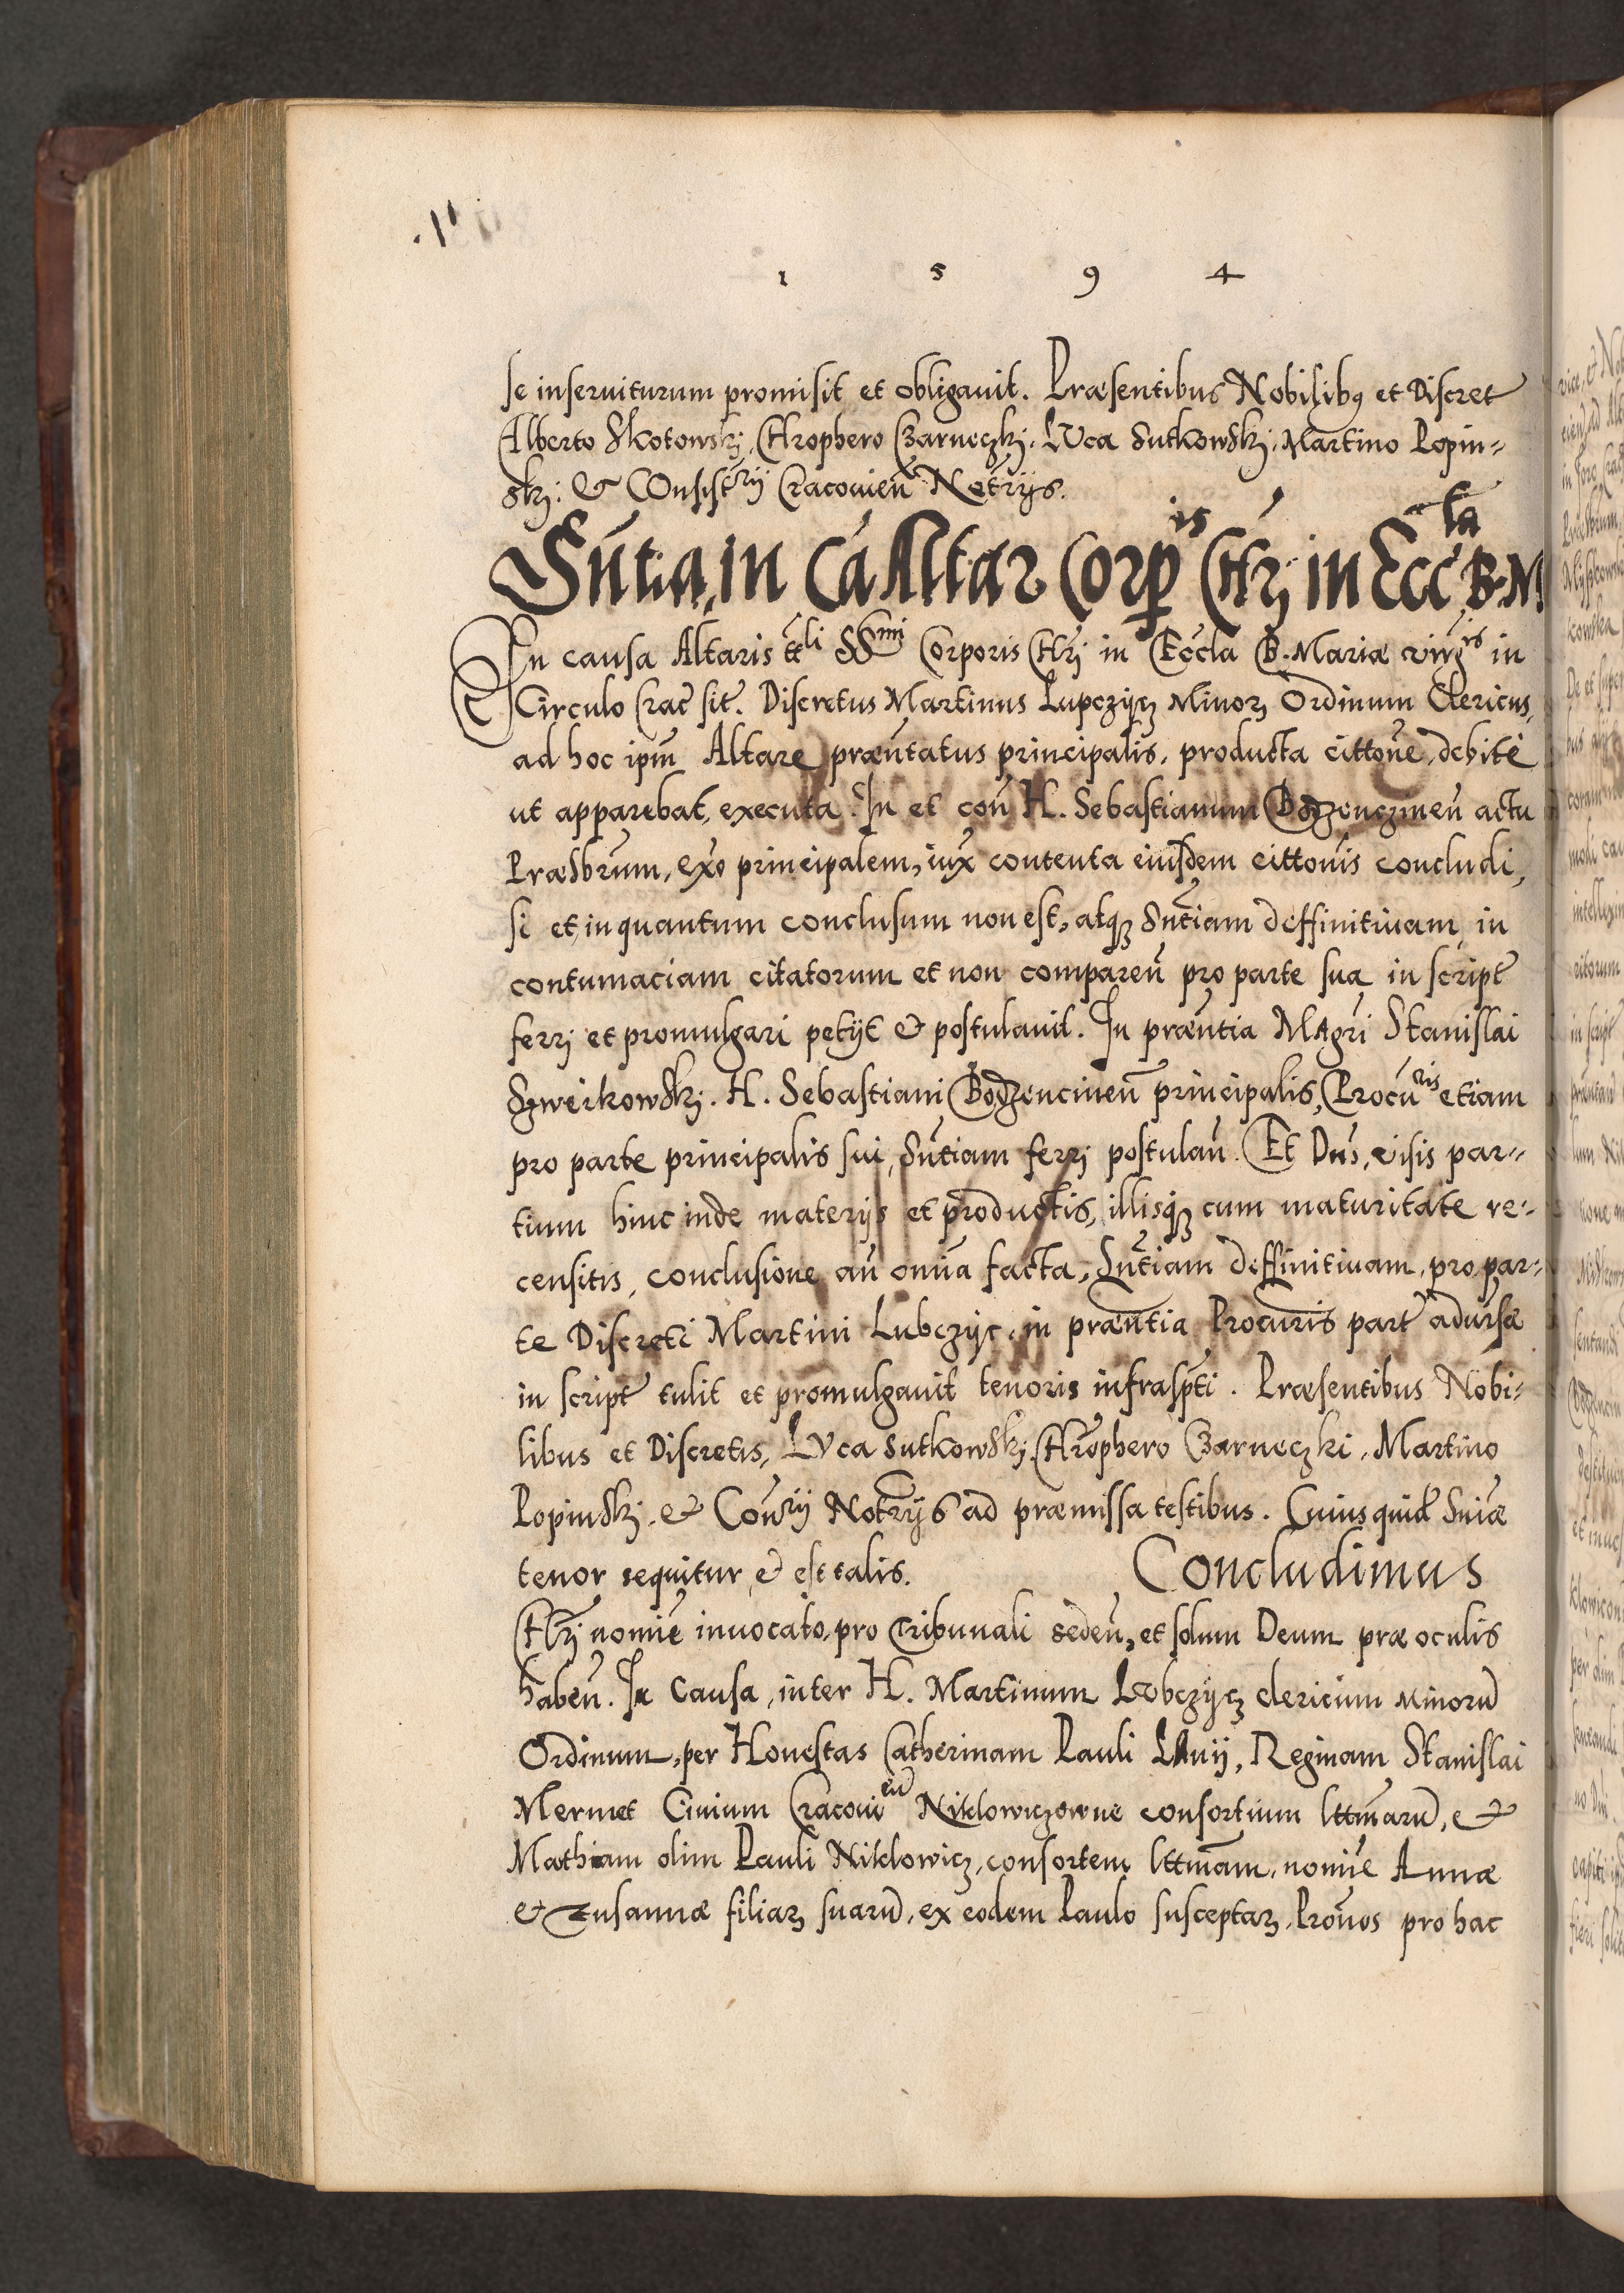 1 5 9 4
se inseruiturum promisit et obligauit. Præsentibus Nobilibꝫ et Discret
Alberto Skotowskj, Chrophero Czarneczkj, LVca Sutkowskj, Martino Popin=
skj: & COnsistrij Cracouien̄ Notrijs.
Sn̄tia, in Cā Altar Corpis Chrj in Eccla B. M
In causa Altaris ttli SSmi Corporis Chrj in Eccla B. Mariæ virgis in
Circulo Crac̄ sit. Discretus Martinus Lupczijcz Minorꝫ Ordinum Clericus,
ad hoc ipm̄ Altare præn̄tatus principalis, producta cittōne, debitè
ut apparebat, executa. In et con̄ H. Sebastianum Bodzenczinen̄ actu
Præsbrum, ex̄o principalem, iux̄ contenta eiusdem cittōnis concludi,
si et inquantum conclusum non est, atqꝫ Sn̄tiam deffinitiuam, in
contumaciam citatorum et non comparen̄ pro parte sua in script
ferrj et promulgari petijt & postulauit. In præn̄tia MAgr̄i Stanislai
Szweikowskj. H. Sebastiani Bodzencinen̄ principalis, Procūris etiam
pro parte principalis sui, Sn̄tiam ferrj postulan̄. Et Dn̄s, visis par=
tium hinc inde materijs et productis, illisqꝫ cum maturitate re=
censitis, conclusione an̄ omn̄ia facta, Sn̄tiam deffinitiuam, pro par=
te Discreti Martini Lubczijc, in præn̄tia Procūris part adūrsæ
in script tulit et promulgauit tenoris infrasp̄ti. Præsentibus Nobi=
libus et Discretis, LVca Sutkowskj, Chrōphero Czarneczki, Martino
Popinskj, & Con̄rij Notrijs ad præmissa testibus. Cuius quid̄ Sn̄iæ
tenor sequitur & est talis. COncludimus
Chrj nomīe inuocato, pro Tribunali seden̄, et solum Deum præ oculis
haben̄. In Causa, inter H. Martinum Lubczijcz clericum Minorū
Ordinum, per Honestas Catherinam Pauli LAnij, Reginam Stanislai
Mermet Ciuium Cracouien̄ Niklowiczowne consortium lttm̄arū, &
Mathiam olim Pauli Niklowicz, consortem lttm̄am, nomīe Annæ
& Zusannæ filiarꝫ suarū, ex eodem Paulo susceptarꝫ, Pron̄os pro hac